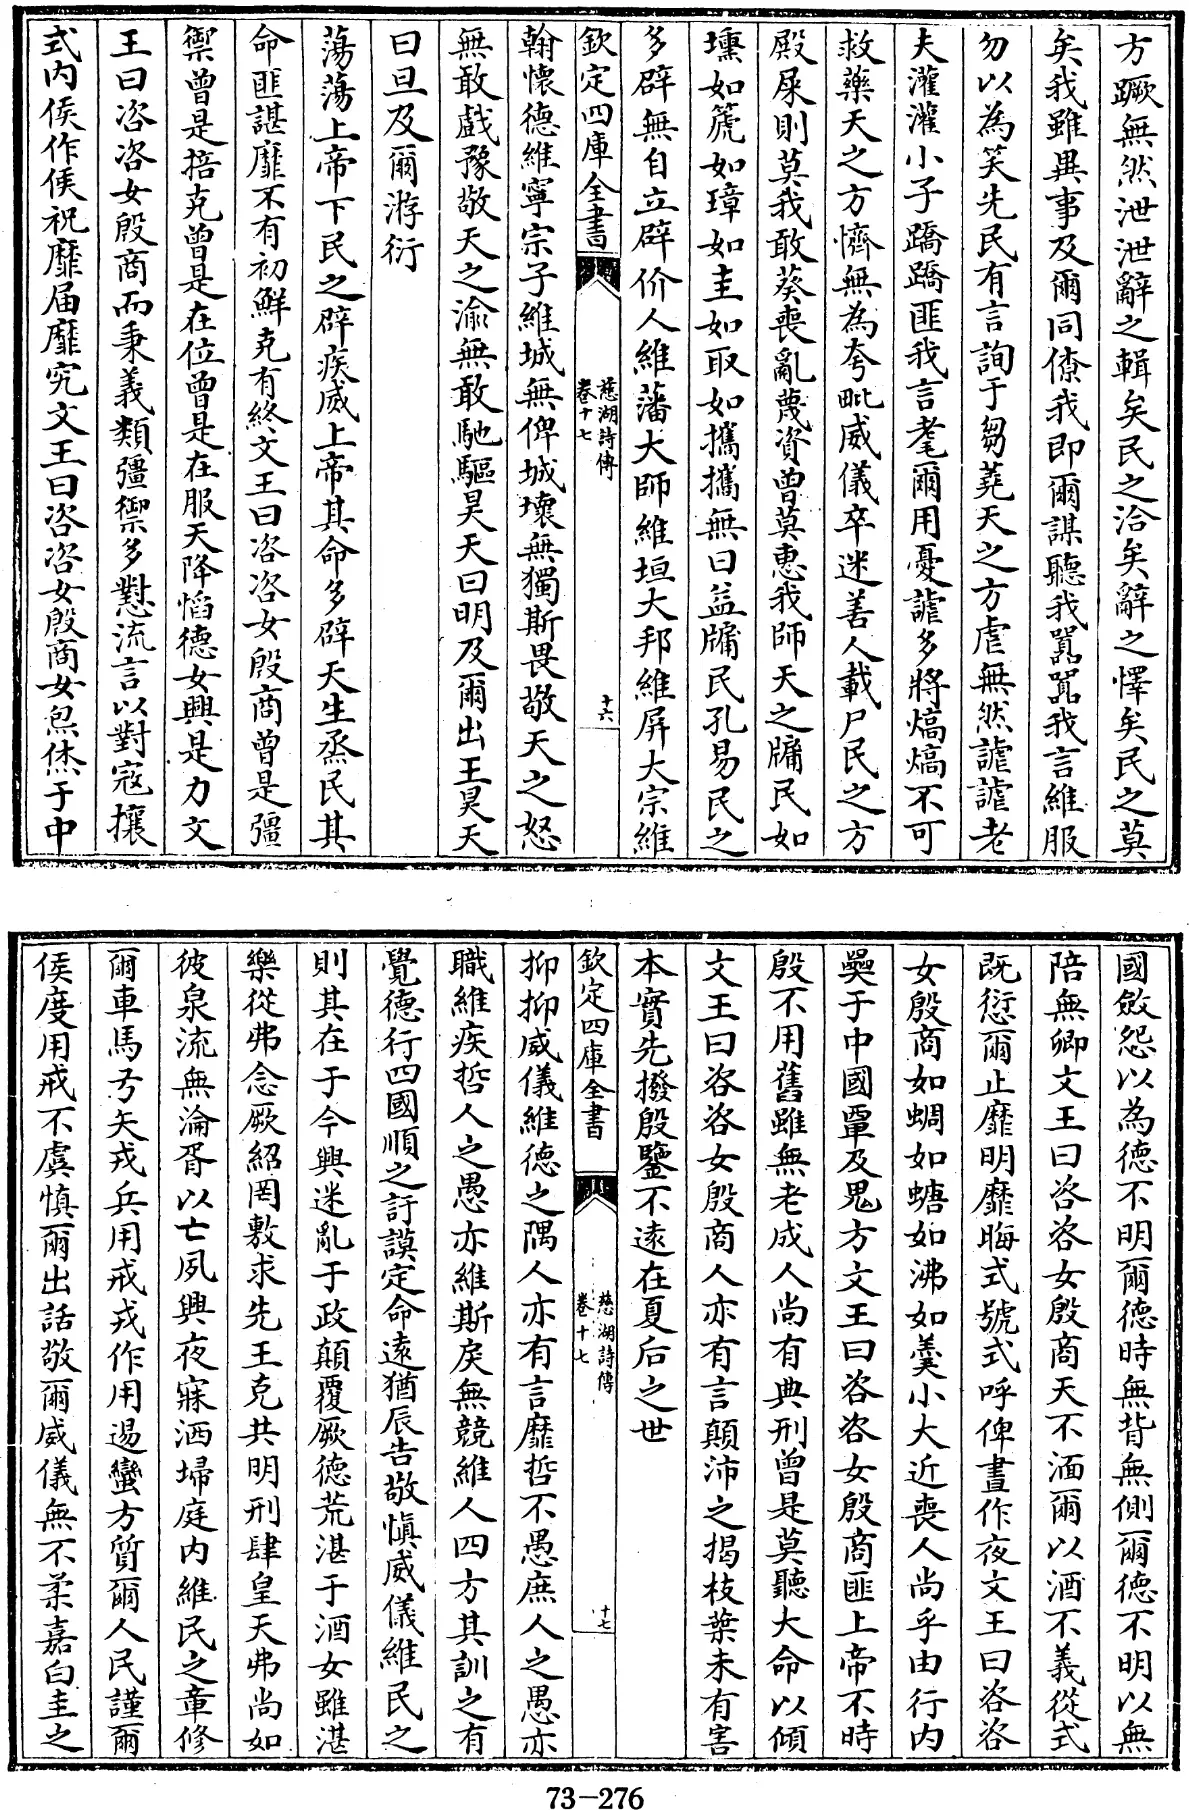 方蹶無然泄泄辭之輯矣民之洽矣辭之懌矣民之莫
矣我雖異事及爾同僚我即爾謀聽我囂囂我言維服
勿以為笑先民有言詢于芻蕘天之方虐無然謔謔老
夫灌灌小子蹻蹻匪我言耄爾用憂謔多將熇熇不可
救藥天之方懠無為夸毗威儀卒迷善人載尸民之方
殿屎則莫我敢葵喪亂蔑資曾莫惠我師天之牖民如
壎如篪如璋如圭如取如攜攜無曰益牖民孔易民之
多辟無自立辟价人維藩大師維垣大邦維屏大宗維
欽定四庫全書
慈湖詩傳
卷十七
十六
翰懷德維寧宗子維城無俾城壞無獨斯畏敬天之怒
無敢戲豫敬天之渝無敢馳驅昊天曰明及爾出王昊天
曰旦及爾游衍
蕩蕩上帝下民之辟疾威上帝其命多辟天生烝民其
命匪諶靡不有初鮮克有終文王曰咨咨女殷商曾是彊
禦曾是掊克曾是在位曾是在服天降慆德女興是力文
王曰咨咨女殷商而秉義類彊禦多懟流言以對寇攘
式内侯作侯祝靡屆靡究文王曰咨咨女殷商女炰烋于中
國斂怨以為德不明爾德時無背無側爾德不明以無
陪無卿文王曰咨咨女殷商天不湎爾以酒不義從式
既愆爾止靡明靡晦式號式呼俾晝作夜文王曰咨咨
女殷商如蜩如螗如沸如羹小大近喪人尚乎由行内
奰于中國覃及鬼方文王曰咨咨女殷商匪上帝不時
殷不用舊雖無老成人尚有典刑曾是莫聽大命以傾
文王曰咨咨女殷商人亦有言顛沛之揭枝葉未有害
本實先撥殷鑒不遠在夏后之世
欽定四庫全書
慈湖詩傳
卷十七
十七
抑抑威儀維德之隅人亦有言靡哲不愚庶人之愚亦
職維疾哲人之愚亦維斯戾無競維人四方其訓之有
覺德行四國順之訏謨定命遠猶辰告敬慎威儀維民之
則其在于今興迷亂于政顛覆厥德荒湛于酒女雖湛
樂從弗念厥紹罔敷求先王克共明刑肆皇天弗尚如
彼泉流無淪胥以亡夙興夜寐洒埽庭内維民之章修
爾車馬弓矢戎兵用戒戎作用逷蠻方質爾人民謹爾
侯度用戒不虞慎爾出話敬爾威儀無不柔嘉白圭之
73-276